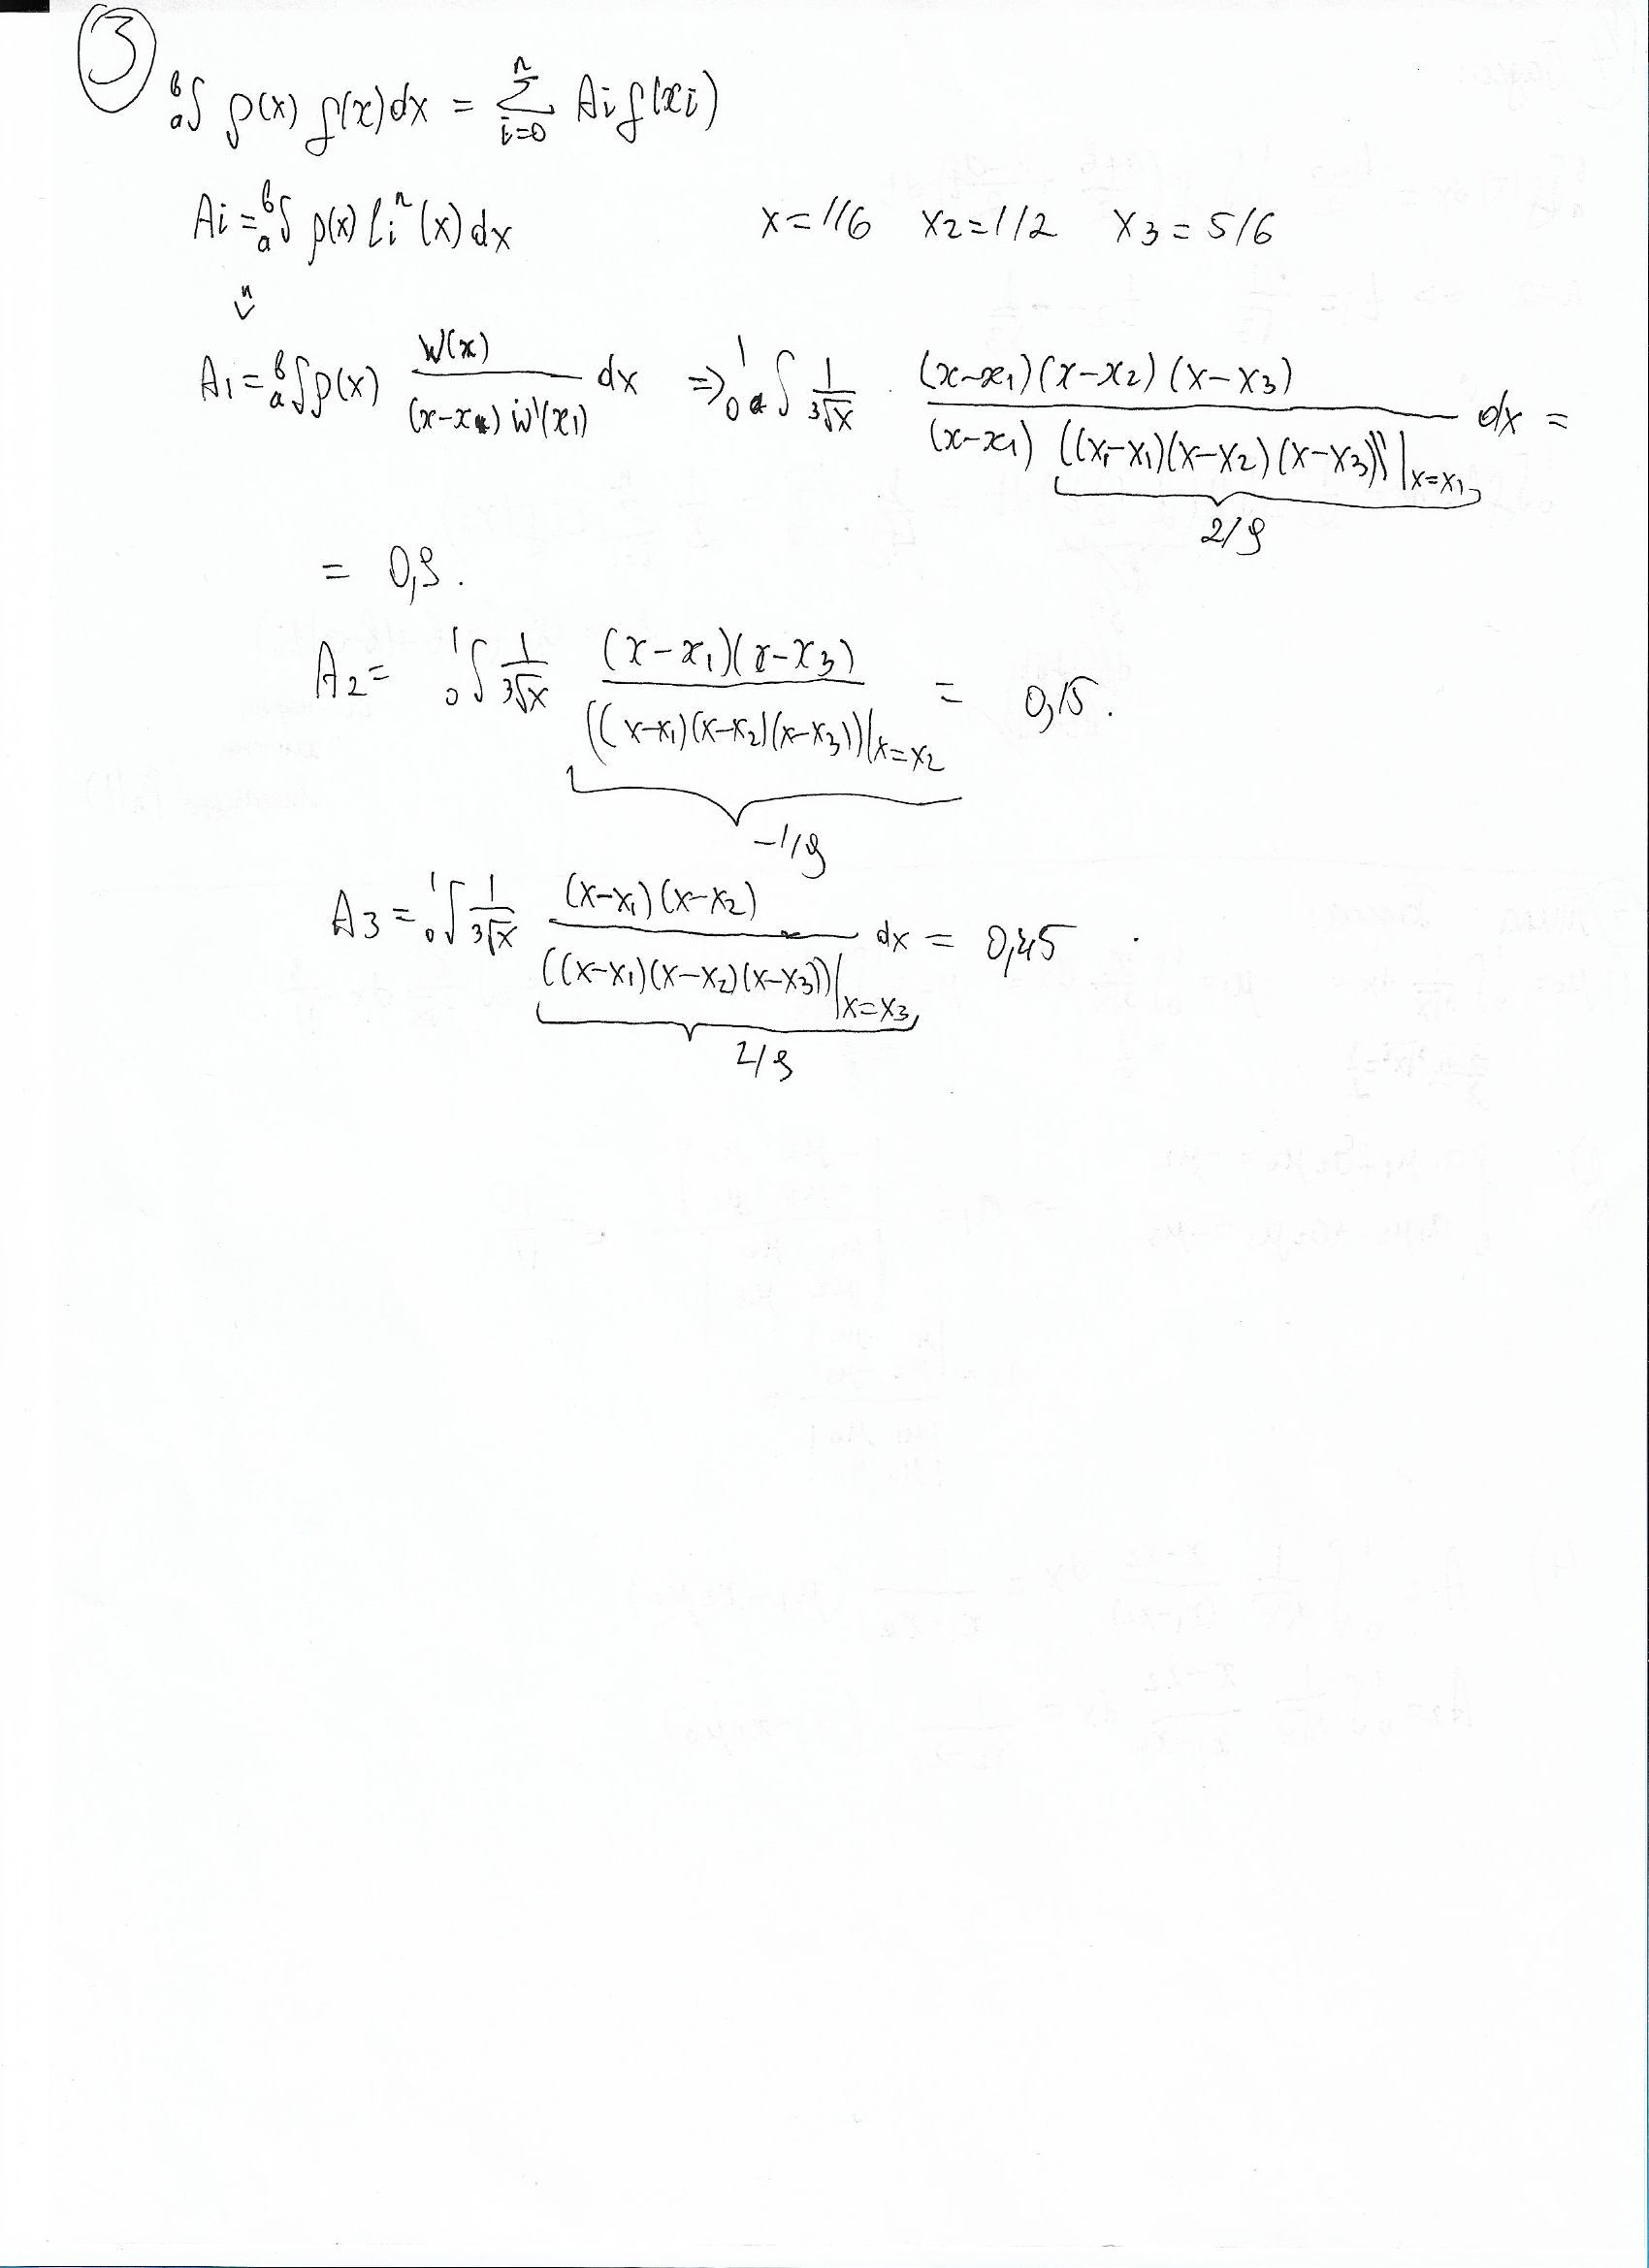 3
ₐᵇ∫ ρ(x) f(x) dx = Σᵢ₌₀ⁿ Ai f(xi)
Ai = ₐᵇ∫ ρ(x) lᵢⁿ(x) dx x = 1/6 x2 = 1/2 x3 = 5/6
A1 = ₐᵇ∫ ρ(x) W(x) / ((x-x) W'(x1)) dx => ₀¹∫ 1/³√x · (x-x1)(x-x2)(x-x3) / ((x-x1) ((x-x1)(x-x2)(x-x3))'|x=x1) dx =
2/9
= 0,9.
A2 = ₀¹∫ 1/³√x (x-x1)(x-x3) / ((x-x1)(x-x2)(x-x3))|x=x2 = 0,15.
-1/9
A3 = ₀¹∫ 1/³√x (x-x1)(x-x2) / ((x-x1)(x-x2)(x-x3))|x=x3 dx = 0,45
2/9